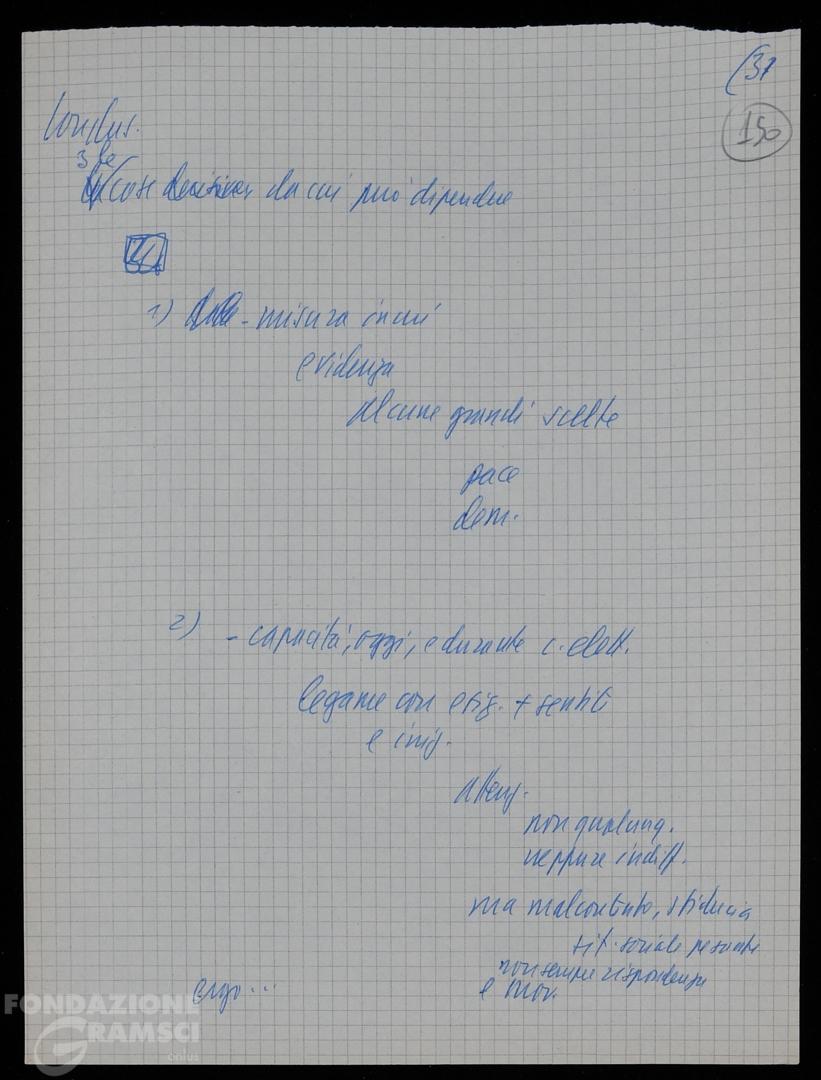 (31
150
Conclus.
3 le
cose decisive da cui può dipendere
1) - misura in cui
evidenza
alcune grandi scelte
pace
dem.
2) - capacità, oggi, e durante c. elett.
legame con esig. + sentit
e imm.
Attenz.
non qualunq.
neppure indiff.
ma malcontento, sfiducia
sit. sociale pesante
non sempre rispondenza
e mov.
ergo...
FONDAZIONE
GRAMSCI
onlus